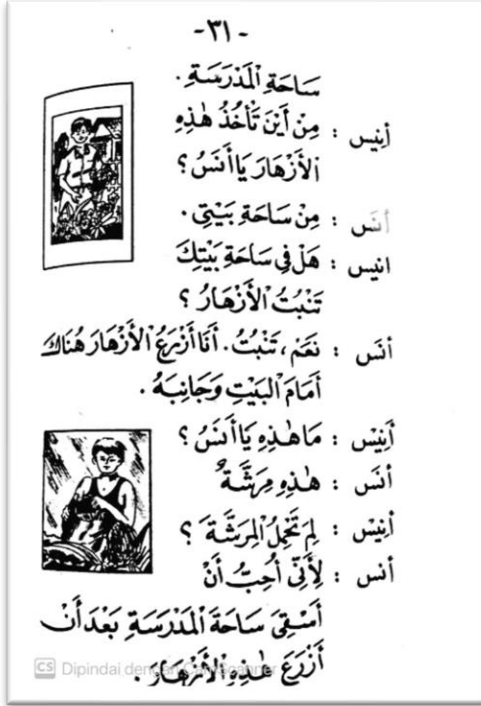 -٣١-
سَاحَةِ الْمَدْرَسَةِ.
أَنِيس : مِنْ أَيْنَ تَأْخُذُ هٰذِهِ
الْأَزْهَارَ يَا أَنَسُ؟
أنَس : مِنْ سَاحَةِ بَيْتِي.
انيس : هَلْ فِي سَاحَةِ بَيْتِكَ
تَنْبُتُ الْأَزْهَارُ؟
أنَس : نَعَمْ، تَنْبُتُ. أَنَا أَزْرَعُ الْأَزْهَارَ هُنَاكَ
أَمَامَ الْبَيْتِ وَجَانِبَهُ.
أَنِيْس : مَا هٰذِهِ يَا أَنَسُ؟
أنَس : هٰذِهِ مِرَشَّةٌ
أنِيْس : لِمَ تَحْمِلُ الْمِرَشَّةَ؟
أنس : لِأَنِّي أُحِبُّ أَنْ
أَسْقِيَ سَاحَةَ الْمَدْرَسَةِ بَعْدَ أَنْ
أَزْرَعَ هٰذِهِ الْأَزْهَارَ.
CS Dipindai dengan CamScanner